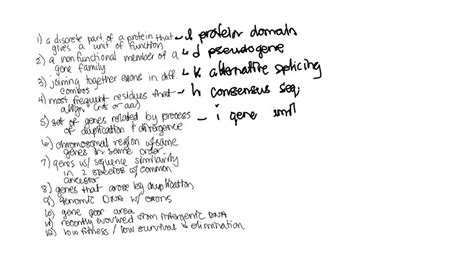 1) a discrete part of a protein that - l protein domain
gives a unit of function
2) a nonfunctional member of a - d pseudogene
gene family
3) joining together exons in diff. - k alternative splicing
combos
4) most frequent residues that - h consensus seq.
align (nts or aas)
5) set of genes related by process - i gene
of duplication + divergence
6) chromosomal region w/ same
genes in same order.
7) genes w/ sequence similarity
in 2 species w/ common
ancestor
8) genes that arose by duplication
9) genomic DNA w/ exons
10) gene poor area
11) recently evolved from intergenic DNA
12) low fitness / low survival elimination